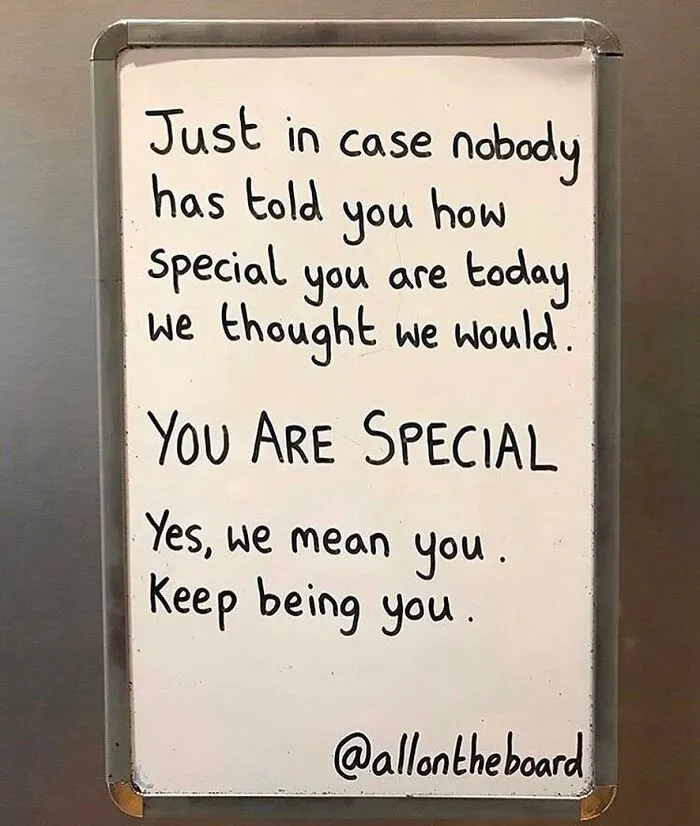 Just in case nobody
has told you how
special you are today
we thought we would.
YOU ARE SPECIAL
Yes, we mean you.
Keep being you.
@allontheboard